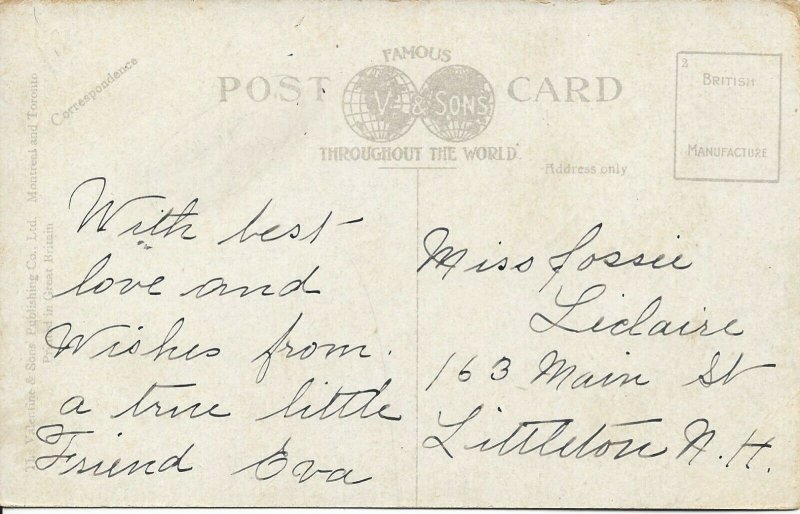 FAMOUS
POST CARD
V. & SONS
THROUGHOUT THE WORLD.
2
BRITISH
MANUFACTURE
Correspondence
Address only
Valentine & Sons Publishing Co., Ltd. Montreal and Toronto
Printed in Great Britain
With best
love and
Wishes from
a true little
Friend Eva
Miss Jossie
Leclaire
163 Main St
Littleton N.H.